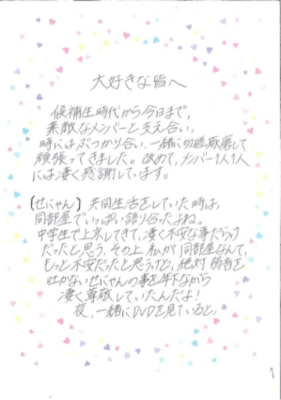 大好きな皆へ
候補生時代から今日まで、
素敵なメンバーと支え合い、
時にはぶつかり合い、一緒に切磋琢磨して
頑張ってきました。改めて、メンバー1人1人
には凄く感謝しています。
【せにゃん】共同生活をしていた時は、
同部屋でいっぱい語り合ったよね。
中学生で上京してきて、凄く不安な事だらけ
だったと思う。その上私が同部屋なんて、
もっと不安だったと思うけど、絶対弱音を
吐かないせにゃんの事を年下ながら
凄く尊敬していたんだよ!
夜、一緒にDVDを見ていると、
1